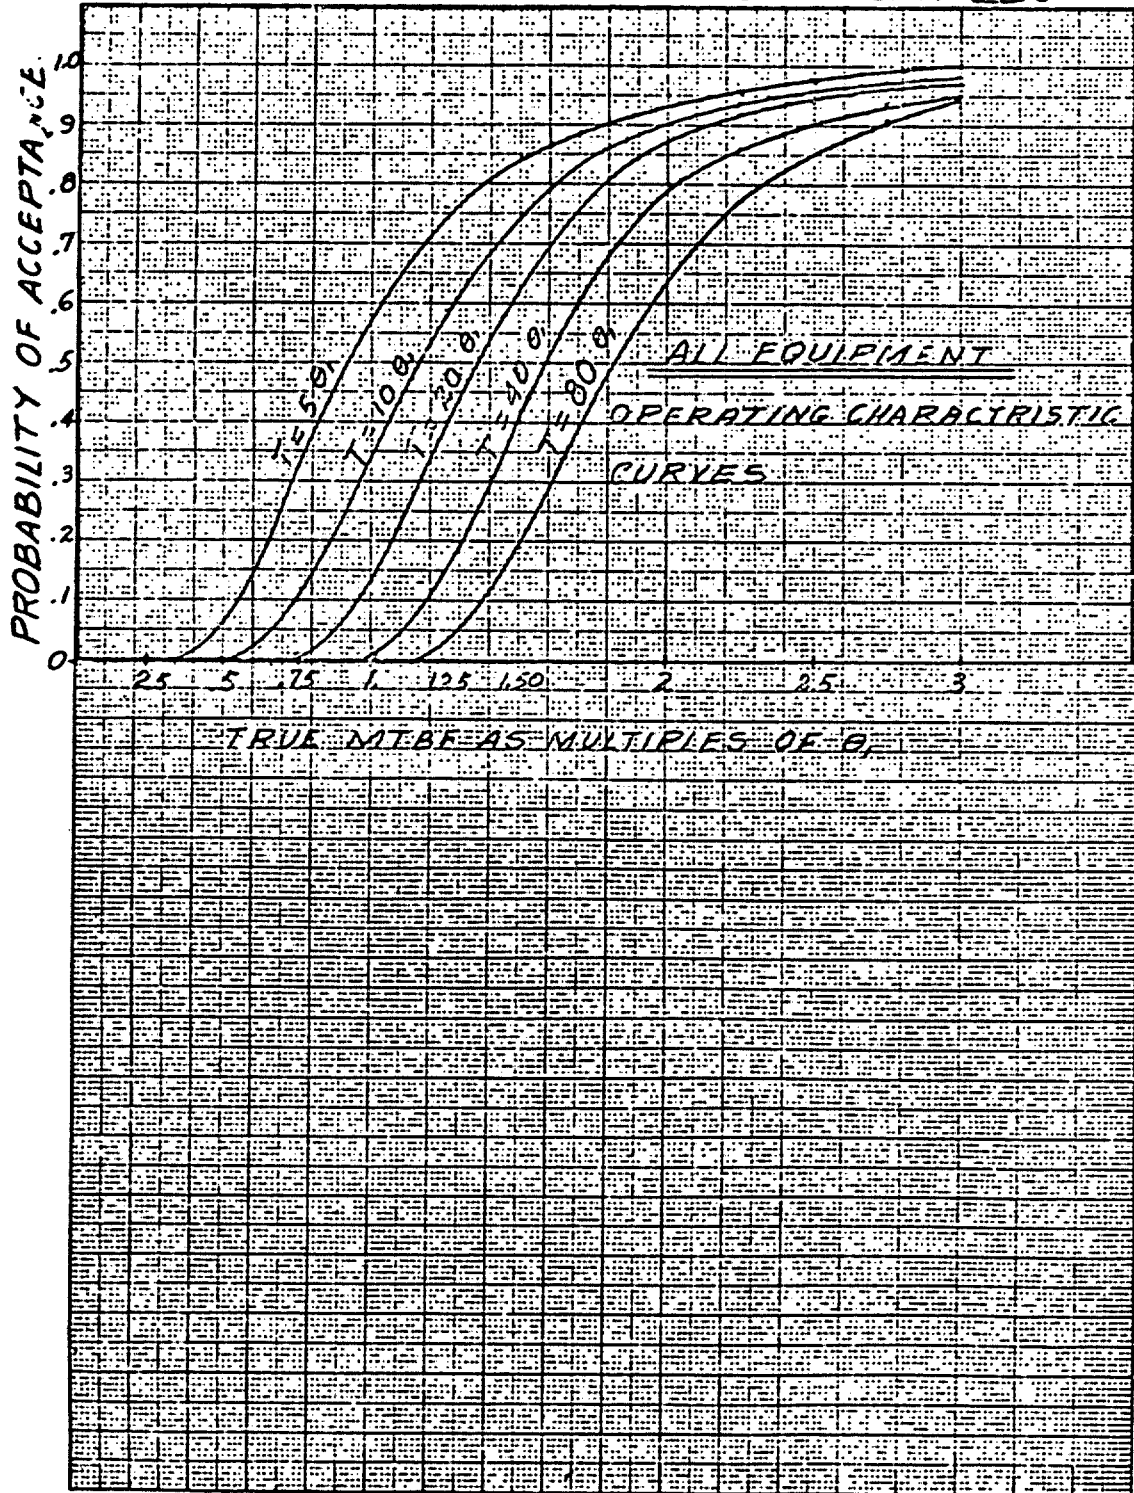 PROBABILITY OF ACCEPTANCE
1.0
.9
.8
.7
.6
.5
.4
.3
.2
.1
0
T=5θ₁
T=10θ₁
T=20θ₁
T=40θ₁
T=80θ₁
ALL EQUIPMENT
OPERATING CHARACTRISTIC
CURVES
.25 .5 .75 1. 1.25 1.50 2 2.5 3
TRUE MTBF AS MULTIPLES OF θ₁